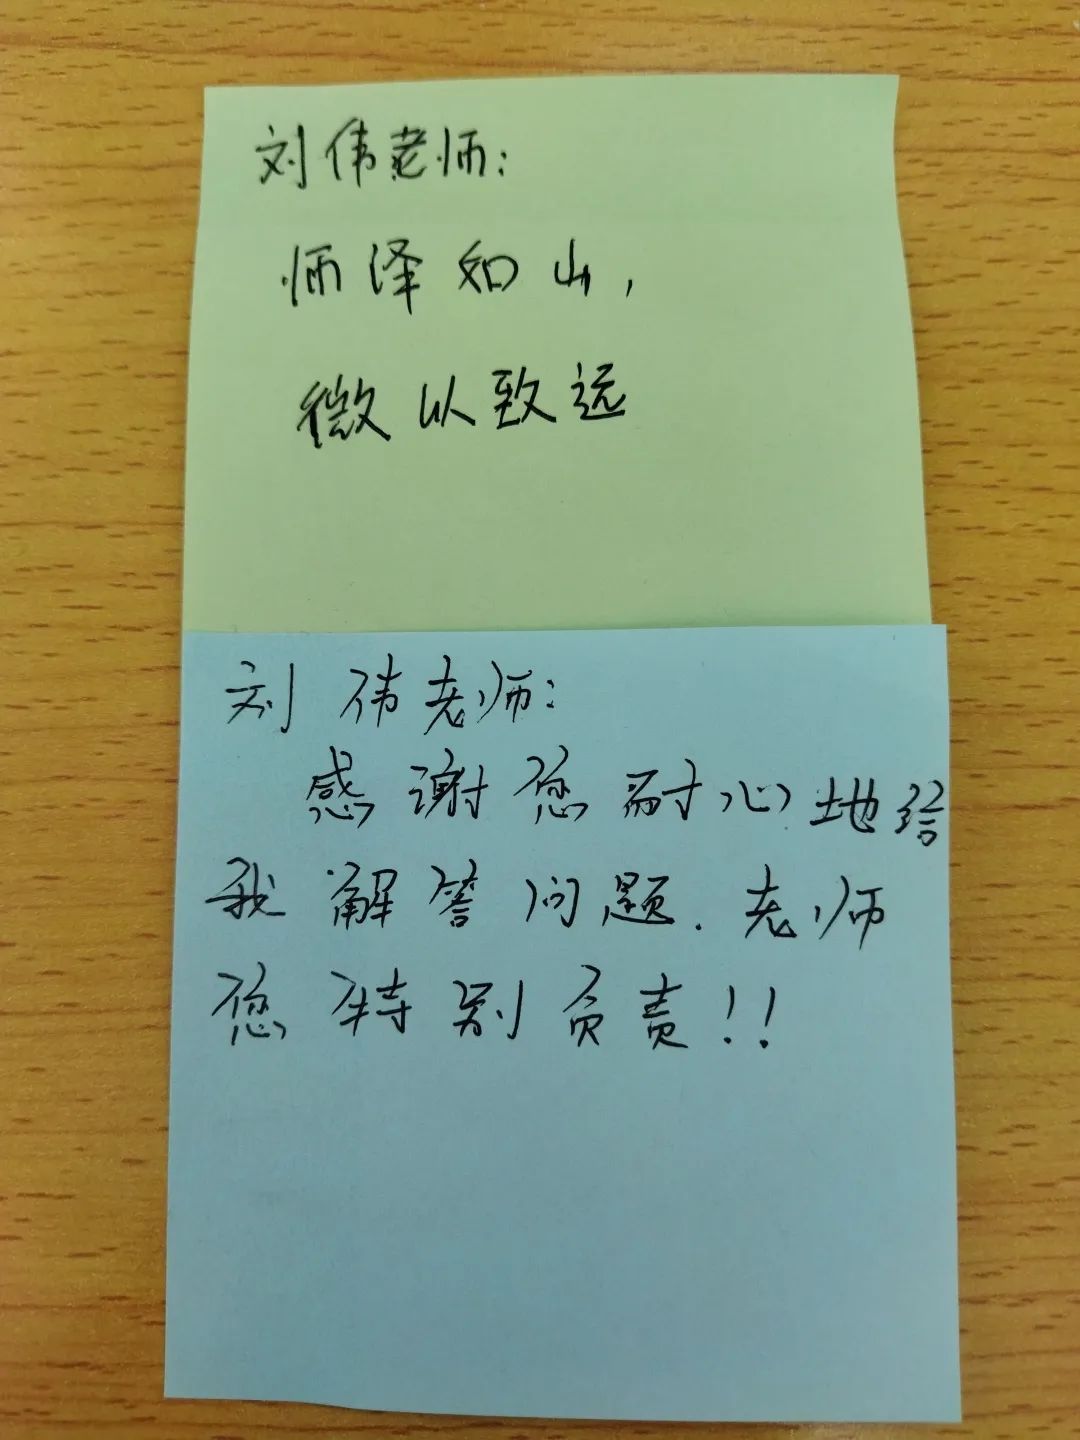 刘伟老师：
师泽如山，
微以致远
刘伟老师：
感谢您耐心地给
我解答问题.老师
您特别负责！！